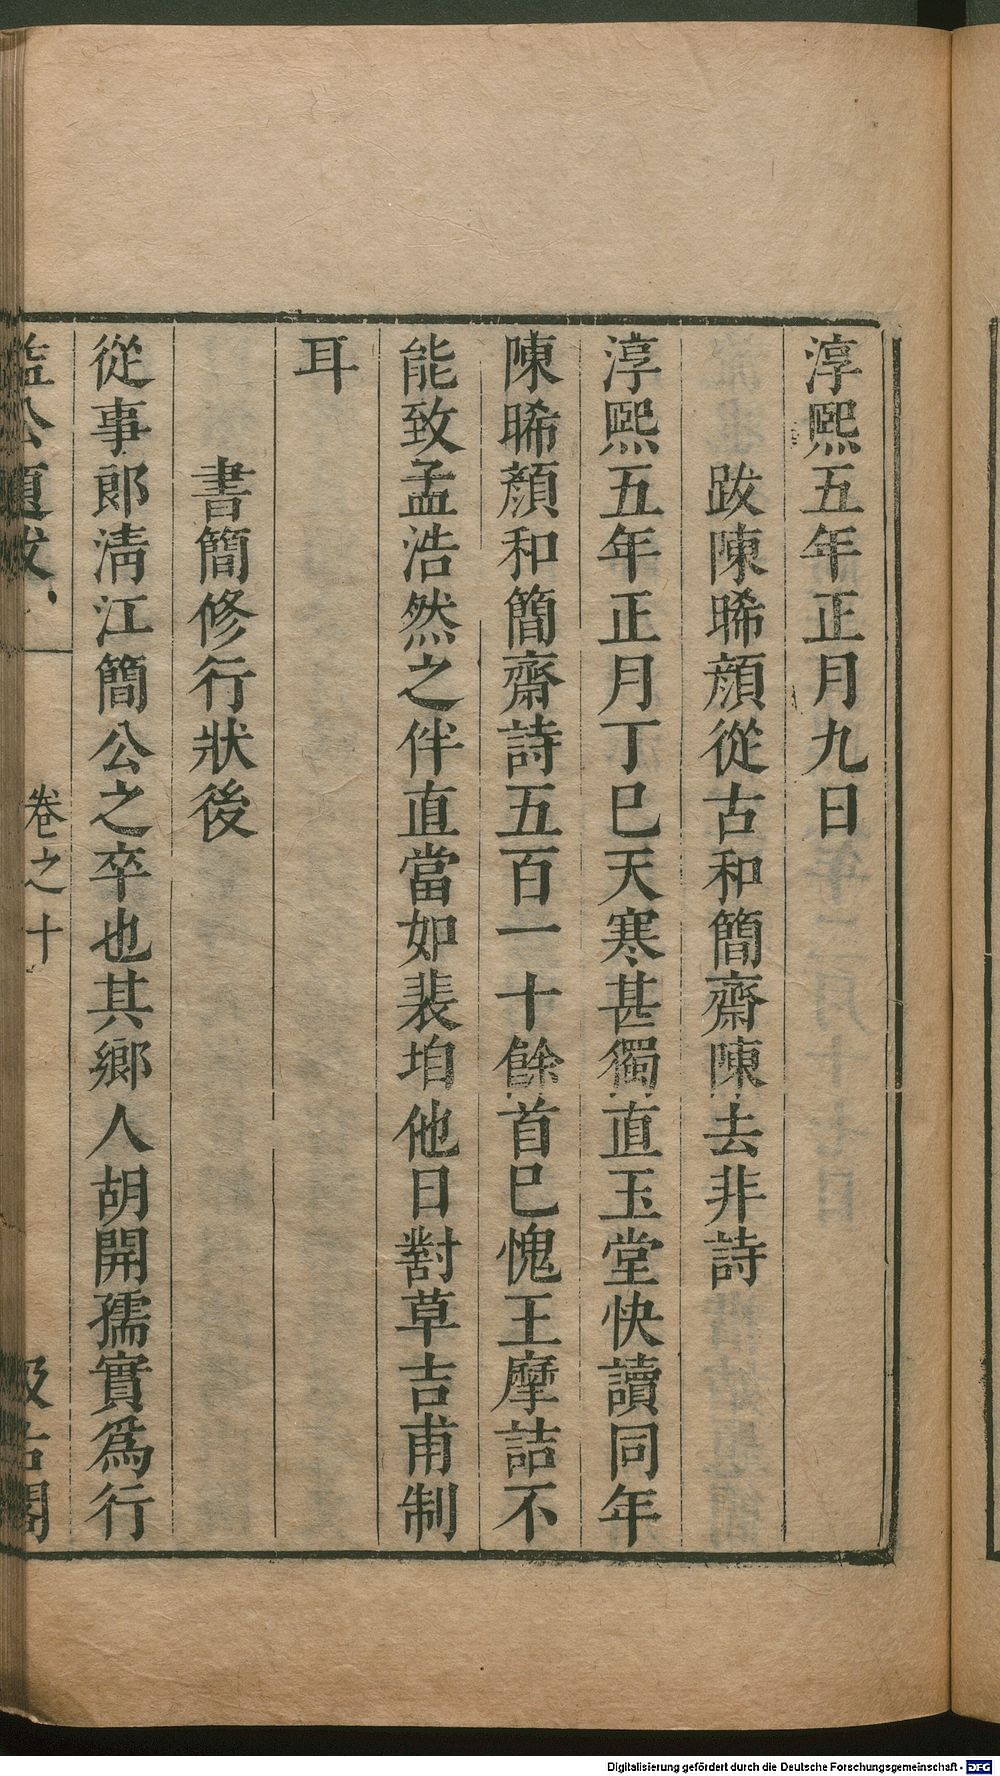 淳熙五年正月九日
跋陳晞顏從古和簡齋陳去非詩
淳熙五年正月丁巳天寒甚獨直玉堂快讀同年
陳晞顏和簡齋詩五百一十餘首巳愧王摩詰不
能致孟浩然之伴直當如裴垍他日對草吉甫制
耳
書簡修行狀後
從事郎清江簡公之卒也其鄉人胡開孺實爲行
益公題跋
卷之十
汲古閣
Digitalisierung gefördert durch die Deutsche Forschungsgemeinschaft - DFG